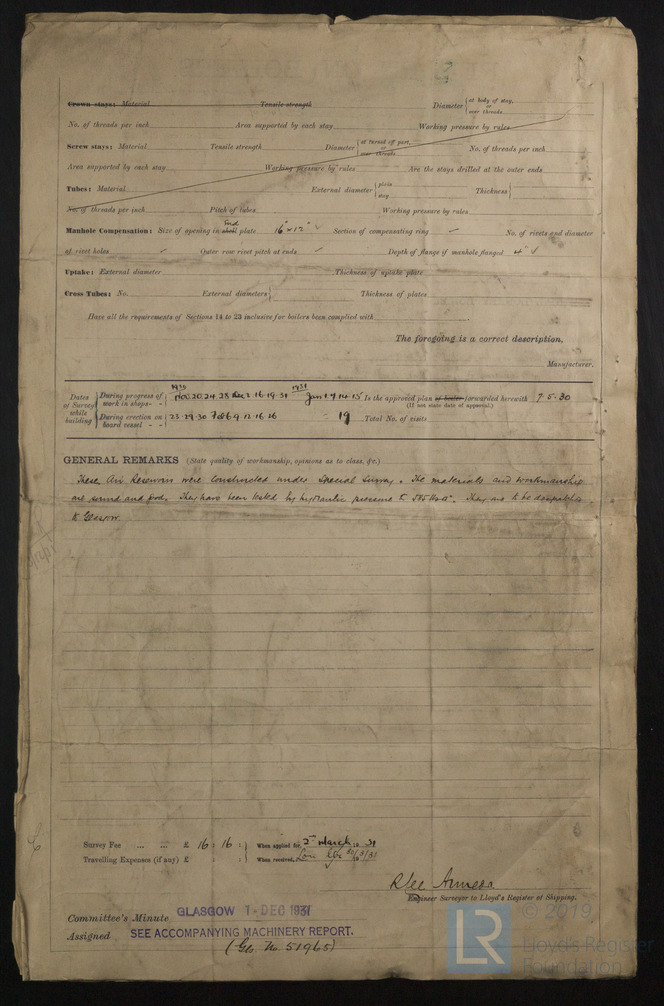 Crown stays: Material Tensile strength Diameter { at body of stay, or over threads
No. of threads per inch Area supported by each stay Working pressure by rules
Screw stays: Material Tensile strength Diameter { at turned off part, or over threads No. of threads per inch
Area supported by each stay Working pressure by rules Are the stays drilled at the outer ends
Tubes: Material External diameter { plain stay Thickness {
No. of threads per inch Pitch of tubes Working pressure by rules
Manhole Compensation: Size of opening in shell End plate 16" x 12" ✓ Section of compensating ring ✓ No. of rivets and diameter
of rivet holes ✓ Outer row rivet pitch at ends ✓ Depth of flange if manhole flanged 4" ✓
Uptake: External diameter Thickness of uptake plate
Cross Tubes: No. External diameters { Thickness of plates
Have all the requirements of Sections 14 to 23 inclusive for boilers been complied with
The foregoing is a correct description,
Manufacturer.
Dates of Survey while building
During progress of work in shops - - 1930 Nov 20.24.28 Dec 2.16.19.31 1931 Jan 1.9.14.15 Is the approved plan of boiler forwarded herewith 7.5.30
(If not state date of approval.)
During erection on board vessel - - 23.29.30 Feb 6 9 12.16.26 = 19 Total No. of visits
GENERAL REMARKS (State quality of workmanship, opinions as to class, &c.)
These Air Reservoirs were constructed under Special Survey. The materials and workmanship
are sound and good. They have been tested by hydraulic pressure to They are to be despatched
to Glasgow.
Survey Fee ... ... £ 16 : 16 : When applied for, 2nd March 19 31
Travelling Expenses (if any) £ : : When received,
R Lee
Engineer Surveyor to Lloyd's Register of Shipping.
Committee's Minute GLASGOW 1 - DEC 1931
Assigned SEE ACCOMPANYING MACHINERY REPORT.
(Gls. No 51965)
LR © 2019
Lloyd's Register
Foundation